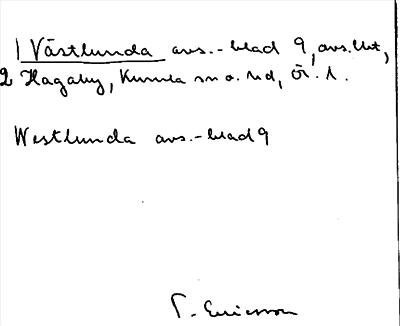 1 Västlunda avs.-blad 9, avs. Ut,
2 Hagaby, Kumla sn o. hd, Ör. l.
Westlunda avs.-blad 9
T. Ericsson